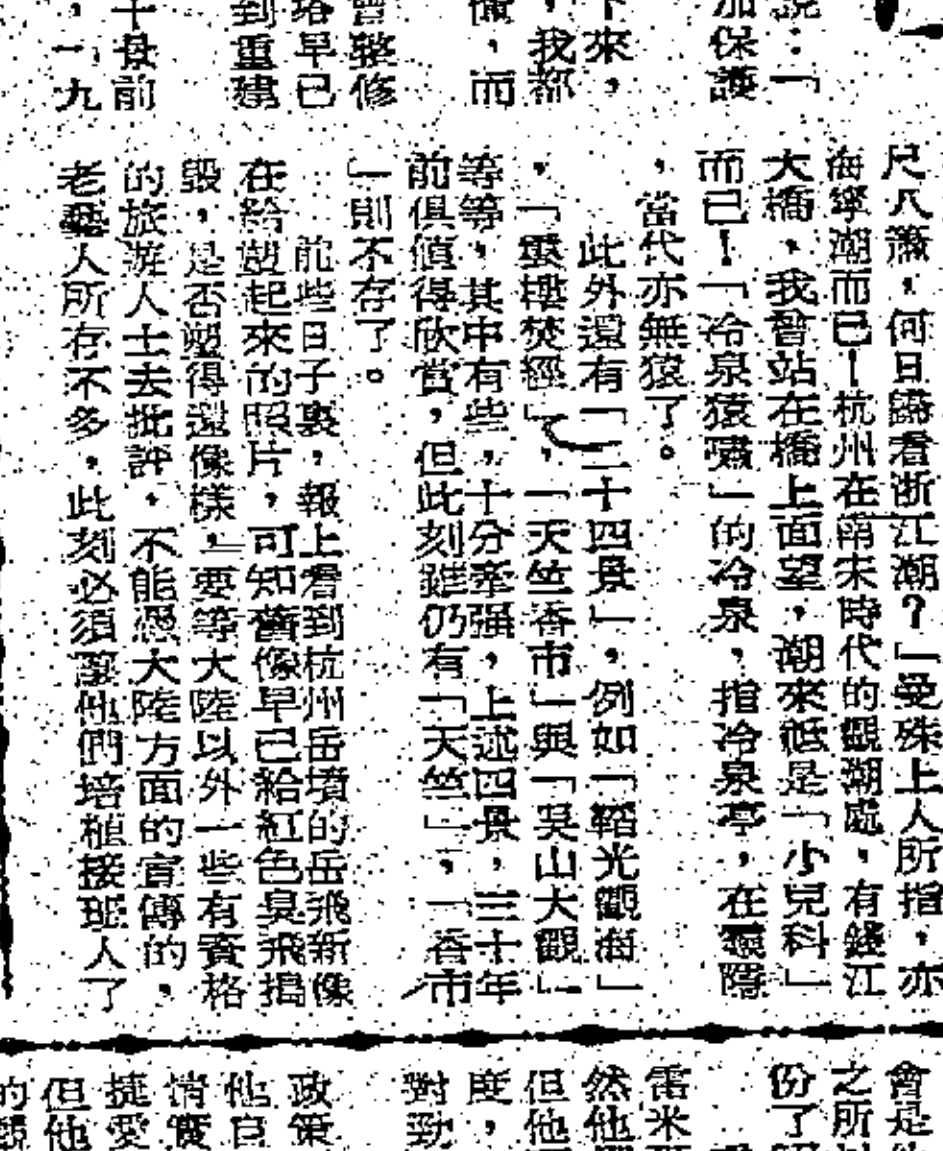 說：「
加保護
下來，
，我都
備，而
曾整修
塔早已
到重建
十景前
，一九
尺八簫，何日歸看浙江潮？」曼殊上人所指，亦
海寧潮而已！杭州在南宋時代的觀潮處，有錢江
大橋，我曾站在橋上面望，潮來祗是「小兒科」
而已！「冷泉猿嘯」的冷泉，指冷泉亭，在靈隱
，當代亦無猿了。
此外還有「二十四景」，例如「韜光觀海」
，「雲棲梵徑」，「天竺香市」與「吳山大觀」
等等，其中有些，十分牽强，上述四景，三十年
前俱值得欣賞，但此刻雖仍有「天竺」，「香市
」則不存了。
前些日子裏，報上看到杭州岳墳的岳飛新像
在給塑起來的照片，可知舊像早已給紅色臭飛搗
毀，是否塑得還像樣，要等大陸以外一些有資格
的旅游人士去批評，不能憑大陸方面的宣傳的，
老藝人所存不多，此刻必須讓他們培植接班人了
會是
之所
份了
雷米
然他
但他
度，
對勁
政策
他自
情實
挺愛
但他
的